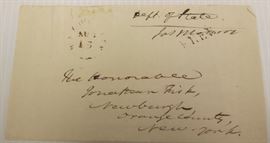 AU
15
Dept. of State.
Jas Madison
FREE
The Honorable
Jonathan Fisk,
Newburgh,
Orange County,
New-York.